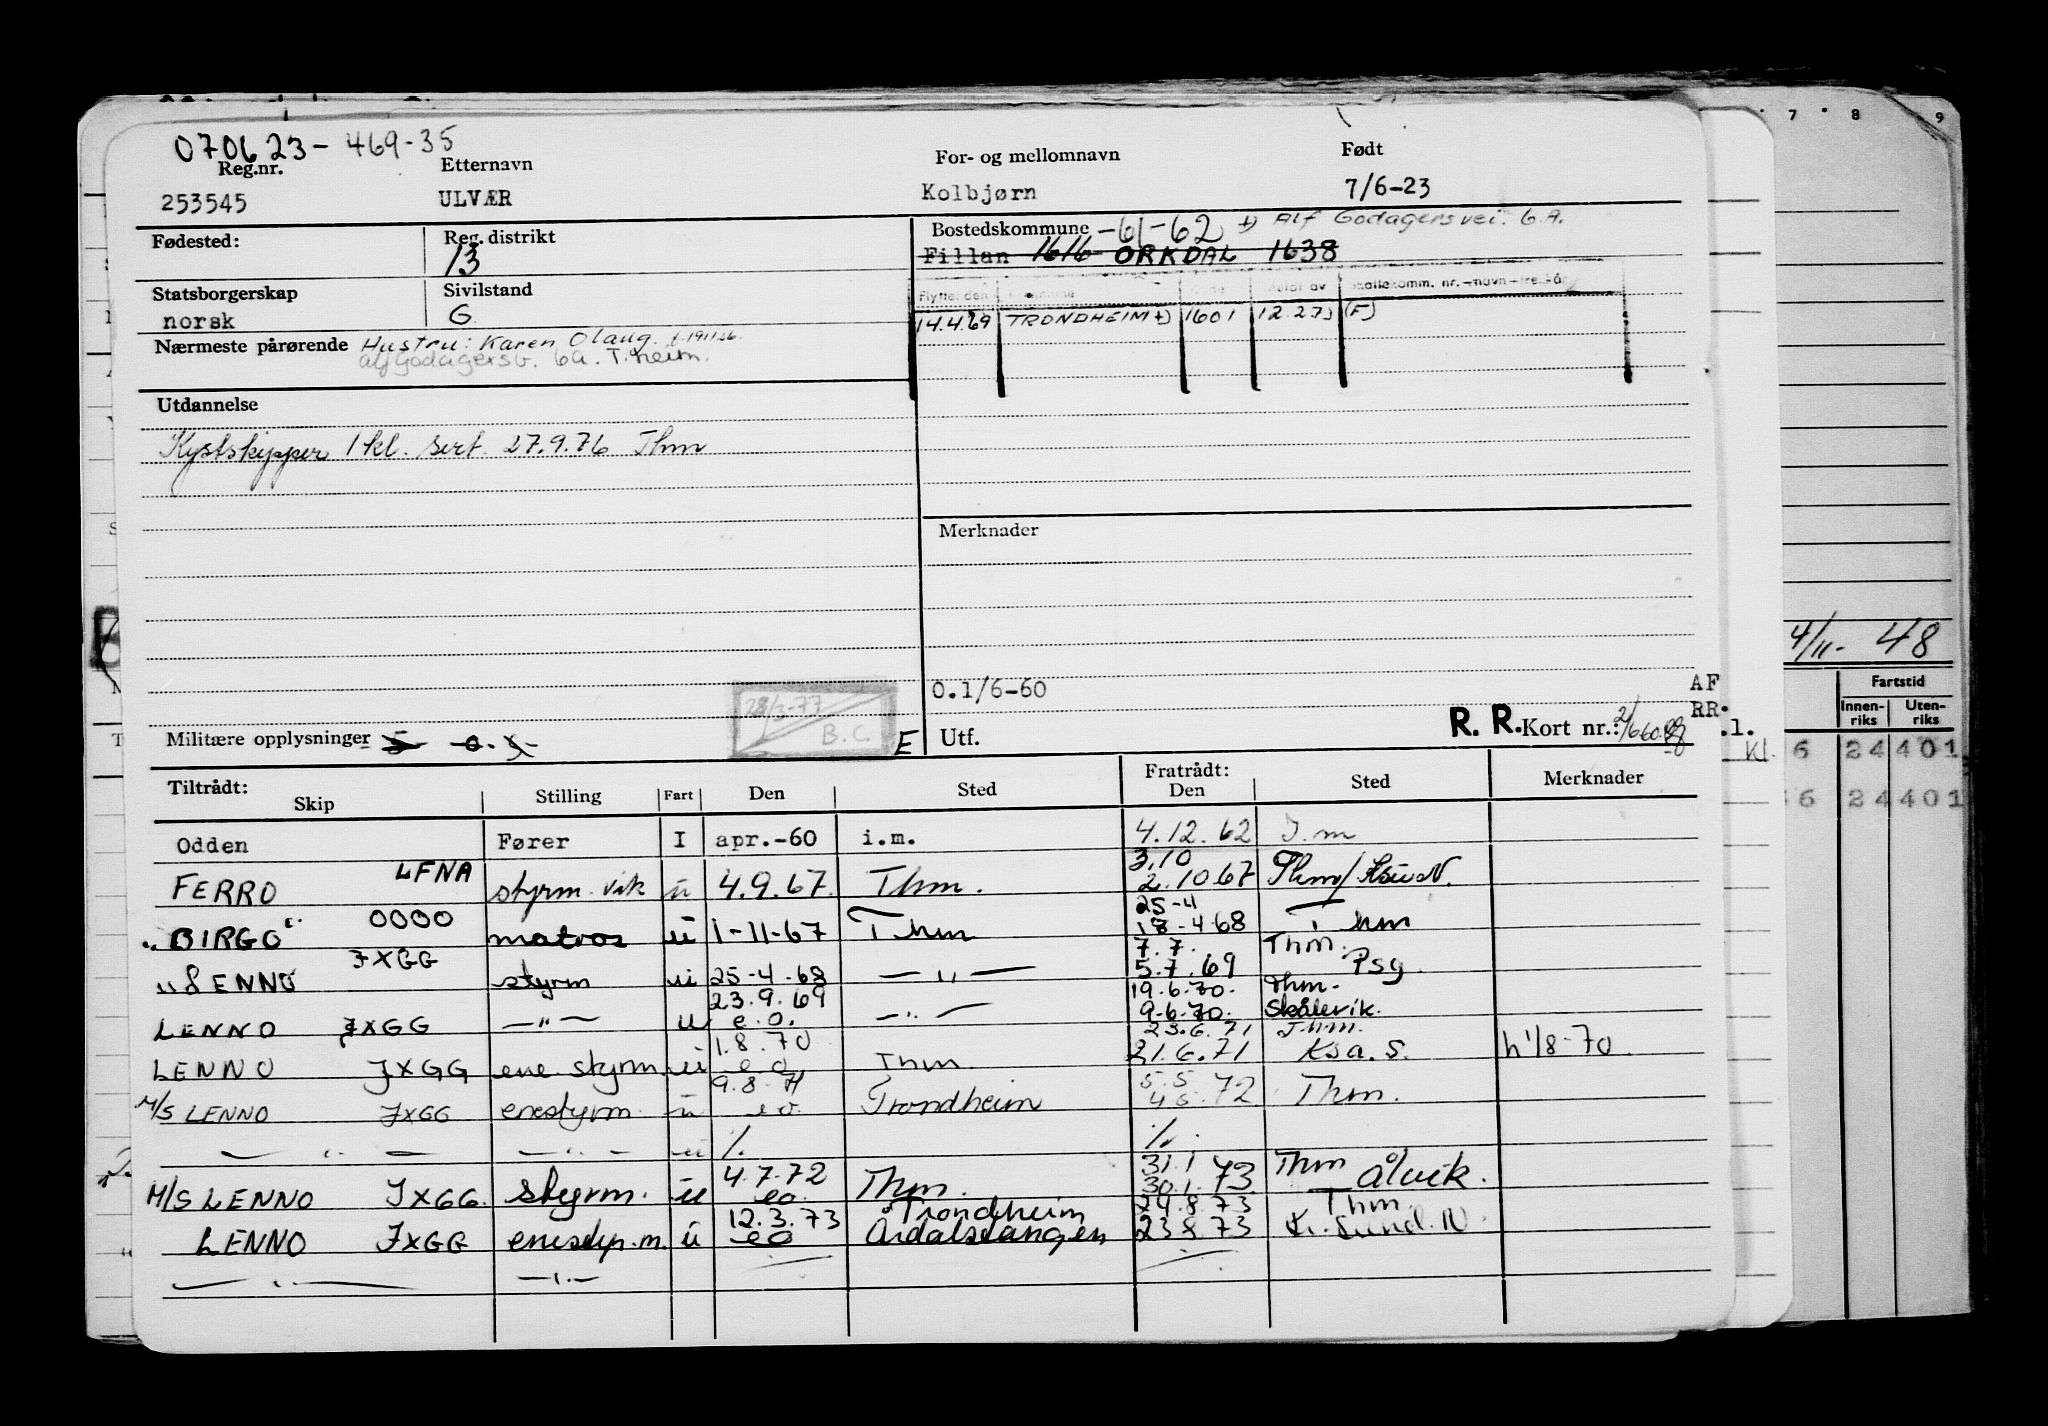 070623-469-35
Reg.nr. Etternavn For- og mellomnavn Født
253545 ULVÆR Kolbjørn 7/6-23
Fødested: Reg. distrikt Bostedskommune -61-62 Alf Godagersvei. 6.A.
13 Fillan 1616 ORKDAL 1638
Statsborgerskap Sivilstand
norsk G
14.4.69 TRONDHEIM 1601 (F)
Nærmeste pårørende Hustru: Karen Olaug.
alf Godagersv. 6a. T.heim.
Utdannelse
Kystskipper 1 kl. sert. 27.9.76 Thm
Merknader
O.1/6-60 AF
RR.
28/3-77
B.C.
Militære opplysninger E Utf. R. R. Kort nr.:
Tiltrådt: Fratrådt:
Skip Stilling Fart Den Sted Den Sted Merknader
Odden Fører I apr.-60 i.m. 4.12.62 I.m
3.10
FERRO LFNA styrm. vik u 4.9.67. Thm. 2.10 67
25-4
"BIRGO" OOOO matros u 1-11-67 Thm 18-4-68 Thm
7.7. Thm.
LENNO JXGG styrm u 25-4.68 — " — 5.7.69 Psg.
23.9.69 19.6.70. Thm.
LENNO JXGG — " — u e.o. — " — 9.6.70. Skålevik.
1.8.70 23.6.71 Thm.
LENNO JXGG ene. styrm. u e.o Thm. 21.6.71 Ksa. S. h 1/8-70
9.8.71 5.5
M/S LENNO JXGG enestyrm. u eo Trondheim 4 5.72 Thm.
— " — — " — u %. %.
4.7.72 31.1 Thm
M/S LENNO JXGG. styrm. u eo Thm. 30.1.73 Ålvik.
12.3.73 Trondheim 24.8.73 Thm
LENNO JXGG enestyr.m. u eo Årdalstangen 23 8 73 Kr. Sund. N
— " — — " —
4/11- 48
Fartstid
Innen-riks Uten-riks
6 24 401
6 24 401
7 8 9